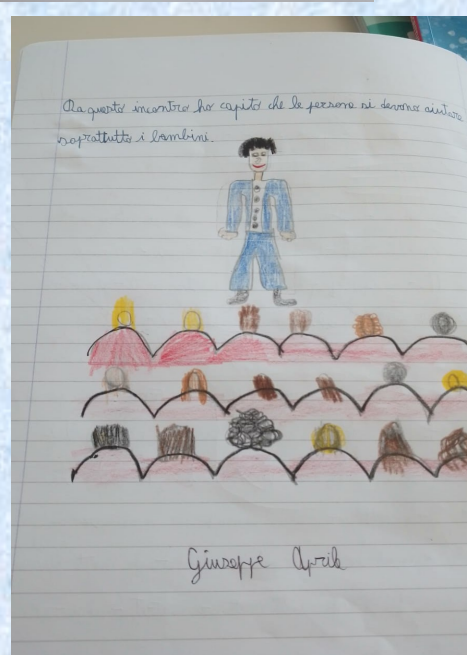 Da questo incontro ho capito che le persone si devono aiutare
soprattutto i bambini.
Giuseppe Aprile